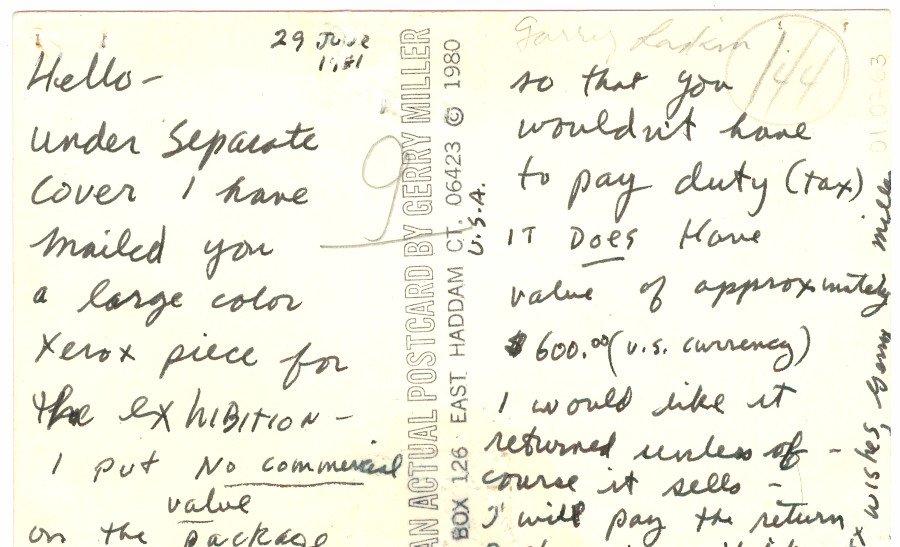 29 June
1981
Hello-
under separate
cover I have
mailed you
a large color
Xerox piece for
the exHIBITION-
I put No commercial
value
on the package
9
AN ACTUAL POSTCARD BY GERRY MILLER
BOX 126 EAST HADDAM CT. 06423 © 1980
U.S.A.
144
010763
so that you
wouldn't have
to pay duty (tax)
IT DOES Have
value of approximately
$600.00 (U.S. currency)
I would like it
returned unless of -
course it sells -
I will pay the return
wishes, Gerry Miller